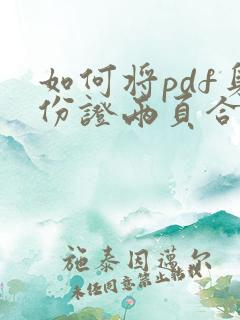 如何将pdf身
份證兩頁合
施泰因邁尔
未任同意禁止转载